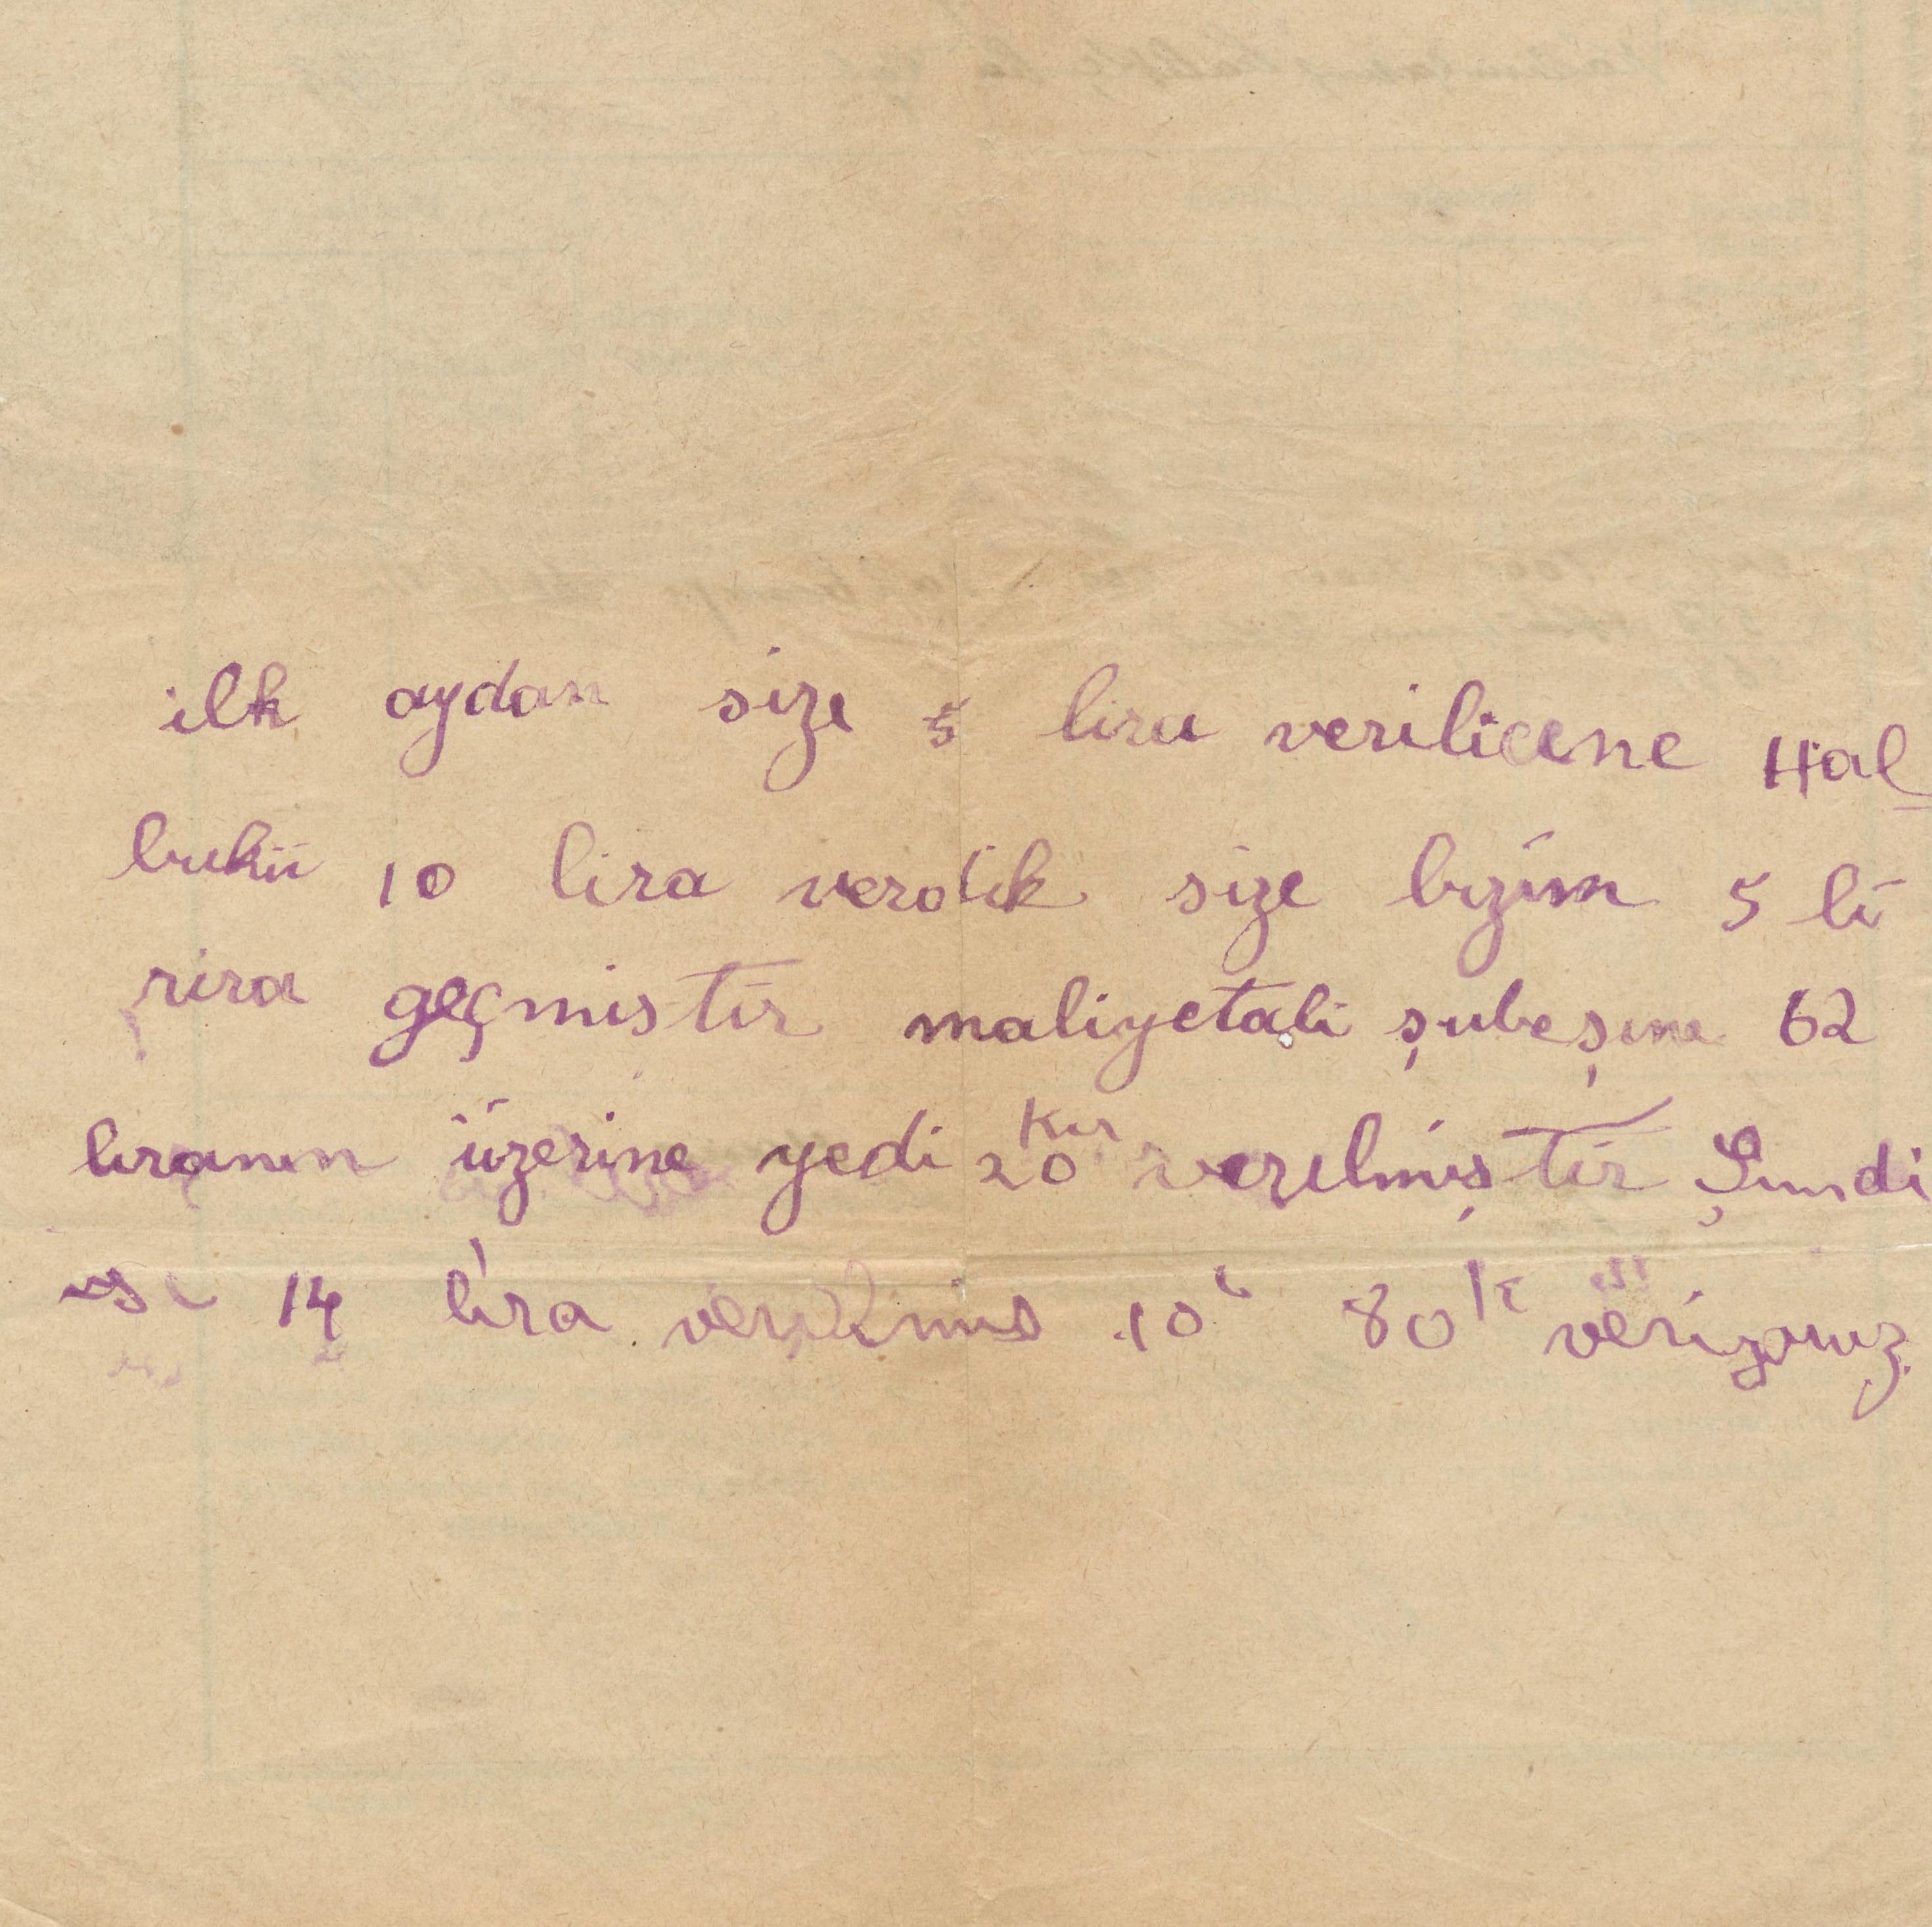 ilk aydan size 5 lira verilicene Hal
bukii 10 lira verdik size bizim 5 li
rira geçmiştir maliyetali şubeşine 62
liranın üzerine yedi 20 Kur verilmiştir Şimdi
ise 14 lira 10 80 k veriyoruz.